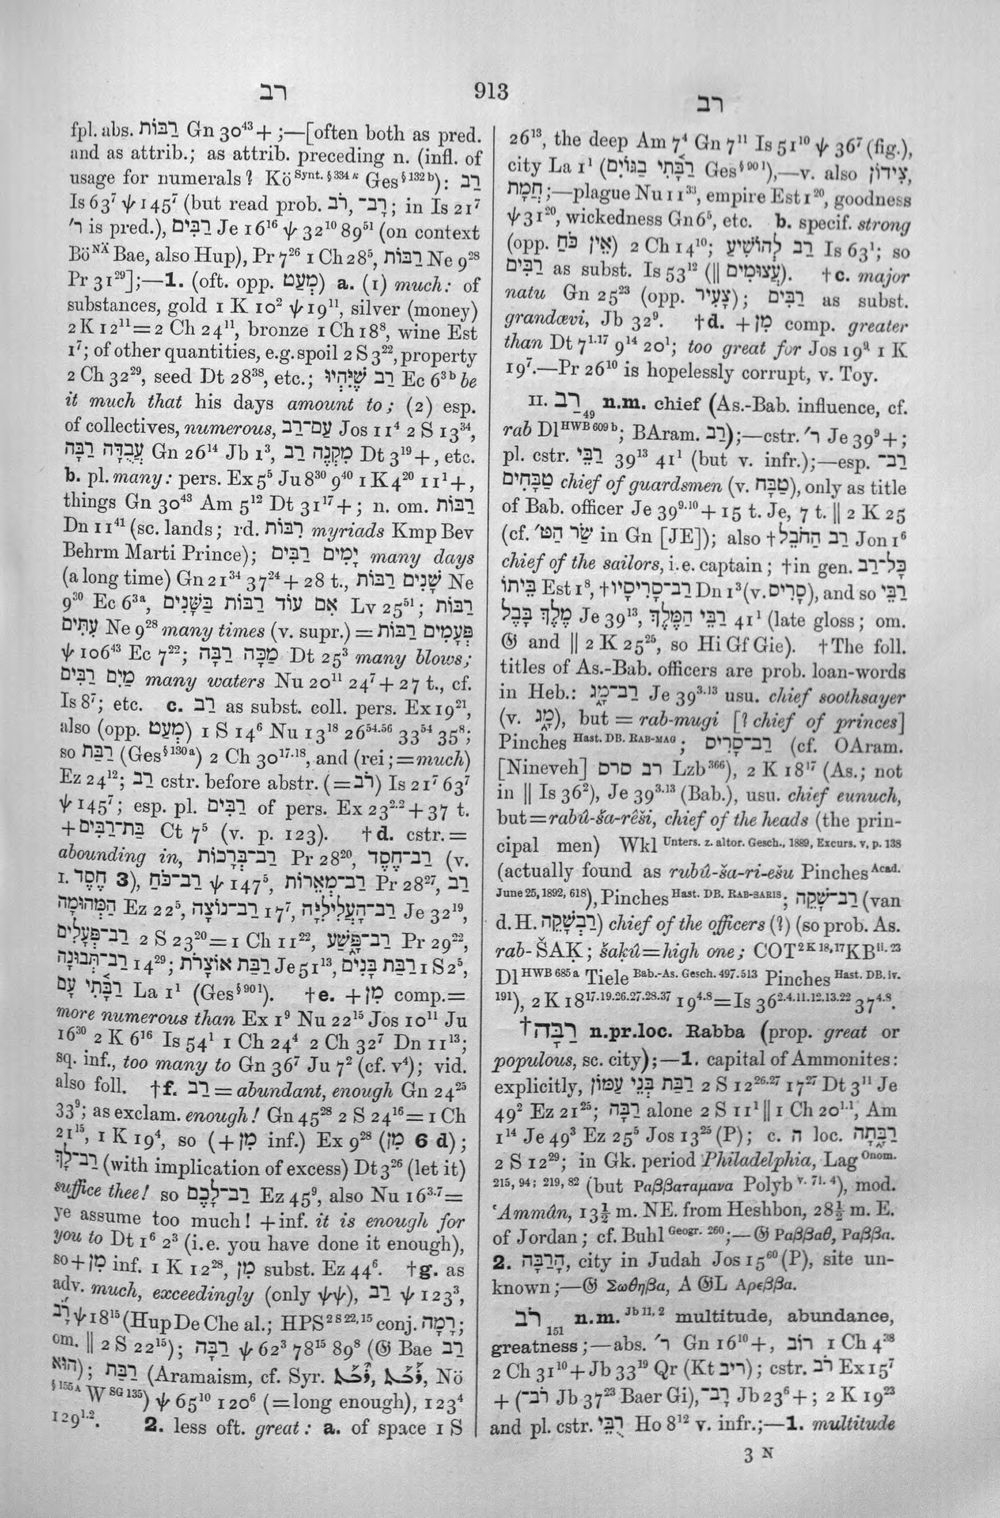 רב
913
רב
fpl. abs. רַבּוֹת Gn 30⁴³ + ;—[often both as pred.
and as attrib.; as attrib. preceding n. (infl. of
usage for numerals? Kö Synt. § 334 κ Ges § 132 b): רַב
Is 63⁷ ψ 145⁷ (but read prob. רֹב, רָב־; in Is 21⁷
ר׳ is pred.), רַבִּים Je 16¹⁶ ψ 32¹⁰ 89⁵¹ (on context
Bö NÄ Bae, also Hup), Pr 7²⁶ 1 Ch 28⁵, רַבּוֹת Ne 9²⁸
Pr 31²⁹];—1. (oft. opp. מְעַט) a. (1) much: of
substances, gold 1 K 10² ψ 19¹¹, silver (money)
2 K 12¹¹ = 2 Ch 24¹¹, bronze 1 Ch 18⁸, wine Est
1⁷; of other quantities, e.g. spoil 2 S 3²², property
2 Ch 32²⁹, seed Dt 28³⁸, etc.; רַב שֶׁיִּהְיוּ Ec 6³ᵇ be
it much that his days amount to; (2) esp.
of collectives, numerous, עַם־רַב Jos 11⁴ 2 S 13³⁴,
עֲבֻדָּה רַבָּה Gn 26¹⁴ Jb 1³, מִקְנֶה רַב Dt 3¹⁹ +, etc.
b. pl. many: pers. Ex 5⁵ Ju 8³⁰ 9⁴⁰ 1 K 4²⁰ 11¹ +,
things Gn 30⁴³ Am 5¹² Dt 31¹⁷ + ; n. om. רַבּוֹת
Dn 11⁴¹ (sc. lands; rd. רִבּוֹת myriads Kmp Bev
Behrm Marti Prince); יָמִים רַבִּים many days
(a long time) Gn 21³⁴ 37²⁴ + 28 t., שָׁנִים רַבּוֹת Ne
9³⁰ Ec 6³ᵃ, אִם עוֹד רַבּוֹת בַּשָּׁנִים Lv 25⁵¹; רַבּוֹת
עִתִּים Ne 9²⁸ many times (v. supr.) = פְּעָמִים רַבּוֹת
ψ 106⁴³ Ec 7²²; מַכָּה רַבָּה Dt 25³ many blows;
מַיִם רַבִּים many waters Nu 20¹¹ 24⁷ + 27 t., cf.
Is 8⁷; etc. c. רַב as subst. coll. pers. Ex 19²¹,
also (opp. מְעַט) 1 S 14⁶ Nu 13¹⁸ 26⁵⁴·⁵⁶ 33⁵⁴ 35⁸;
so רַבַּת (Ges § 130 a) 2 Ch 30¹⁷·¹⁸, and (rei; = much)
Ez 24¹²; רַב cstr. before abstr. (= רֹב) Is 21⁷ 63⁷
ψ 145⁷; esp. pl. רַבִּים of pers. Ex 23²·² + 37 t.
+ בַּת־רַבִּים Ct 7⁵ (v. p. 123). † d. cstr. =
abounding in, רַב־בְּרָכוֹת Pr 28²⁰, רַב־חֶסֶד (v.
I. חֶסֶד 3), רַב־כֹּחַ ψ 147⁵, רַב־מְאֵרוֹת Pr 28²⁷, רַב
הַמְּהוּמָה Ez 22⁵, רַב־נוֹצָה 17⁷, רַב־הָעֲלִילִיָּה Je 32¹⁹,
רַב־פְּעָלִים 2 S 23²⁰ = 1 Ch 11²², רַב־פֶּשַׁע Pr 29²²,
רַב־תְּבוּנָה 14²⁹; רַבַּת אוֹצָרֹת Je 51¹³, רַבַּת בָּנִים 1 S 2⁵,
רַבָּתִי עָם La 1¹ (Ges § 90 l). † e. + מִן comp. =
more numerous than Ex 1⁹ Nu 22¹⁵ Jos 10¹¹ Ju
16³⁰ 2 K 6¹⁶ Is 54¹ 1 Ch 24⁴ 2 Ch 32⁷ Dn 11¹³;
sq. inf., too many to Gn 36⁷ Ju 7² (cf. v⁴); vid.
also foll. † f. רַב = abundant, enough Gn 24²⁵
33⁹; as exclam. enough! Gn 45²⁸ 2 S 24¹⁶ = 1 Ch
21¹⁵, 1 K 19⁴, so (+ מִן inf.) Ex 9²⁸ (מִן 6 d);
רַב־לָךְ (with implication of excess) Dt 3²⁶ (let it)
suffice thee! so רַב־לָכֶם Ez 45⁹, also Nu 16³·⁷ =
ye assume too much! + inf. it is enough for
you to Dt 1⁶ 2³ (i.e. you have done it enough),
so + מִן inf. 1 K 12²⁸, מִן subst. Ez 44⁶. † g. as
adv. much, exceedingly (only ψψ), רַב ψ 123³,
רָב ψ 18¹⁵ (Hup De Che al.; HPS 2 S 22, 15 conj. רָמָה;
om. ‖ 2 S 22¹⁵); רַבָּה ψ 62³ 78¹⁵ 89⁸ (𝔊 Bae רַב
הוּא); רַבַּת (Aramaism, cf. Syr. Nö
§ 155 A W SG 135) ψ 65¹⁰ 120⁶ (= long enough), 123⁴
129¹·². 2. less oft. great: a. of space 1 S
26¹³, the deep Am 7⁴ Gn 7¹¹ Is 51¹⁰ ψ 36⁷ (fig.),
city La 1¹ (רַבָּתִי בַגּוֹיִם Ges § 90 l),—v. also צִידוֹן,
חֲמָת;—plague Nu 11³³, empire Est 1²⁰, goodness
ψ 31²⁰, wickedness Gn 6⁵, etc. b. specif. strong
(opp. אֵין כֹּחַ) 2 Ch 14¹⁰; רַב לְהוֹשִׁיעַ Is 63¹; so
רַבִּים as subst. Is 53¹² (‖ עֲצוּמִים). † c. major
natu Gn 25²³ (opp. צָעִיר); רַבִּים as subst.
grandævi, Jb 32⁹. † d. + מִן comp. greater
than Dt 7¹·¹⁷ 9¹⁴ 20¹; too great for Jos 19⁹ 1 K
19⁷.—Pr 26¹⁰ is hopelessly corrupt, v. Toy.
II. רַב 49 n.m. chief (As.-Bab. influence, cf.
rab Dl HWB 609 b; BAram. רַב);—cstr. ר׳ Je 39⁹ + ;
pl. cstr. רַבֵּי 39¹³ 41¹ (but v. infr.);—esp. רַב־
טַבָּחִים chief of guardsmen (v. טַבָּח), only as title
of Bab. officer Je 39⁹·¹⁰ + 15 t. Je, 7 t. ‖ 2 K 25
(cf. שַׂר הַטּ׳ in Gn [JE]); also † רַב הַחֹבֵל Jon 1⁶
chief of the sailors, i.e. captain; † in gen. כָּל־רַב
בֵּיתוֹ Est 1⁸, † רַב־סָרִיסָיו Dn 1³ (v. סָרִים), and so רַבֵּי
מֶלֶךְ בָּבֶל Je 39¹³, רַבֵּי הַמֶּלֶךְ 41¹ (late gloss; om.
𝔊 and ‖ 2 K 25²⁵, so Hi Gf Gie). † The foll.
titles of As.-Bab. officers are prob. loan-words
in Heb.: רַב־מָג Je 39³·¹³ usu. chief soothsayer
(v. מָג), but = rab-mugi [? chief of princes]
Pinches Hast. DB. RAB-MAG; רַב־סָרִיס (cf. OAram.
[Nineveh] רב סרס Lzb 366), 2 K 18¹⁷ (As.; not
in ‖ Is 36²), Je 39³·¹³ (Bab.), usu. chief eunuch,
but = rabû-ša-rêši, chief of the heads (the prin-
cipal men) Wkl Unters. z. altor. Gesch., 1889, Excurs. v, p. 138
(actually found as rubû-ša-ri-ešu Pinches Acad.
June 25, 1892, 618), Pinches Hast. DB. RAB-SARIS; רַב־שָׁקֵה (van
d. H. רַבְשָׁקֵה) chief of the officers (?) (so prob. As.
rab-ŠAḲ; šaḳû = high one; COT 2 K 18, 17 KB ii. 23
Dl HWB 685 a Tiele Bab.-As. Gesch. 497. 513 Pinches Hast. DB. iv.
191), 2 K 18¹⁷·¹⁹·²⁶·²⁷·²⁸·³⁷ 19⁴·⁸ = Is 36²·⁴·¹¹·¹²·¹³·²² 37⁴·⁸.
† רַבָּה n.pr.loc. Rabba (prop. great or
populous, sc. city);—1. capital of Ammonites:
explicitly, רַבַּת בְּנֵי עַמּוֹן 2 S 12²⁶·²⁷ 17²⁷ Dt 3¹¹ Je
49² Ez 21²⁵; רַבָּה alone 2 S 11¹ ‖ 1 Ch 20¹·¹, Am
1¹⁴ Je 49³ Ez 25⁵ Jos 13²⁵ (P); c. ה loc. רַבָּתָה
2 S 12²⁹; in Gk. period Philadelphia, Lag Onom.
215, 94; 219, 82 (but Ραββαταμανα Polyb v. 71. 4), mod.
ʿAmmân, 13½ m. NE. from Heshbon, 28½ m. E.
of Jordan; cf. Buhl Geogr. 260;—𝔊 Ραββαθ, Ραββα.
2. הָרַבָּה, city in Judah Jos 15⁶⁰ (P), site un-
known;—𝔊 Σωθηβα, A 𝔊L Αρεββα.
רֹב 151 n.m. Jb 11, 2 multitude, abundance,
greatness;—abs. ר׳ Gn 16¹⁰ +, רוֹב 1 Ch 4³⁸
2 Ch 31¹⁰ + Jb 33¹⁹ Qr (Kt ריב); cstr. רֹב Ex 15⁷
+ (רֹב־ Jb 37²³ Baer Gi), רָב־ Jb 23⁶ + ; 2 K 19²³
and pl. cstr. רֻבֵּי Ho 8¹² v. infr.;—1. multitude
3 N